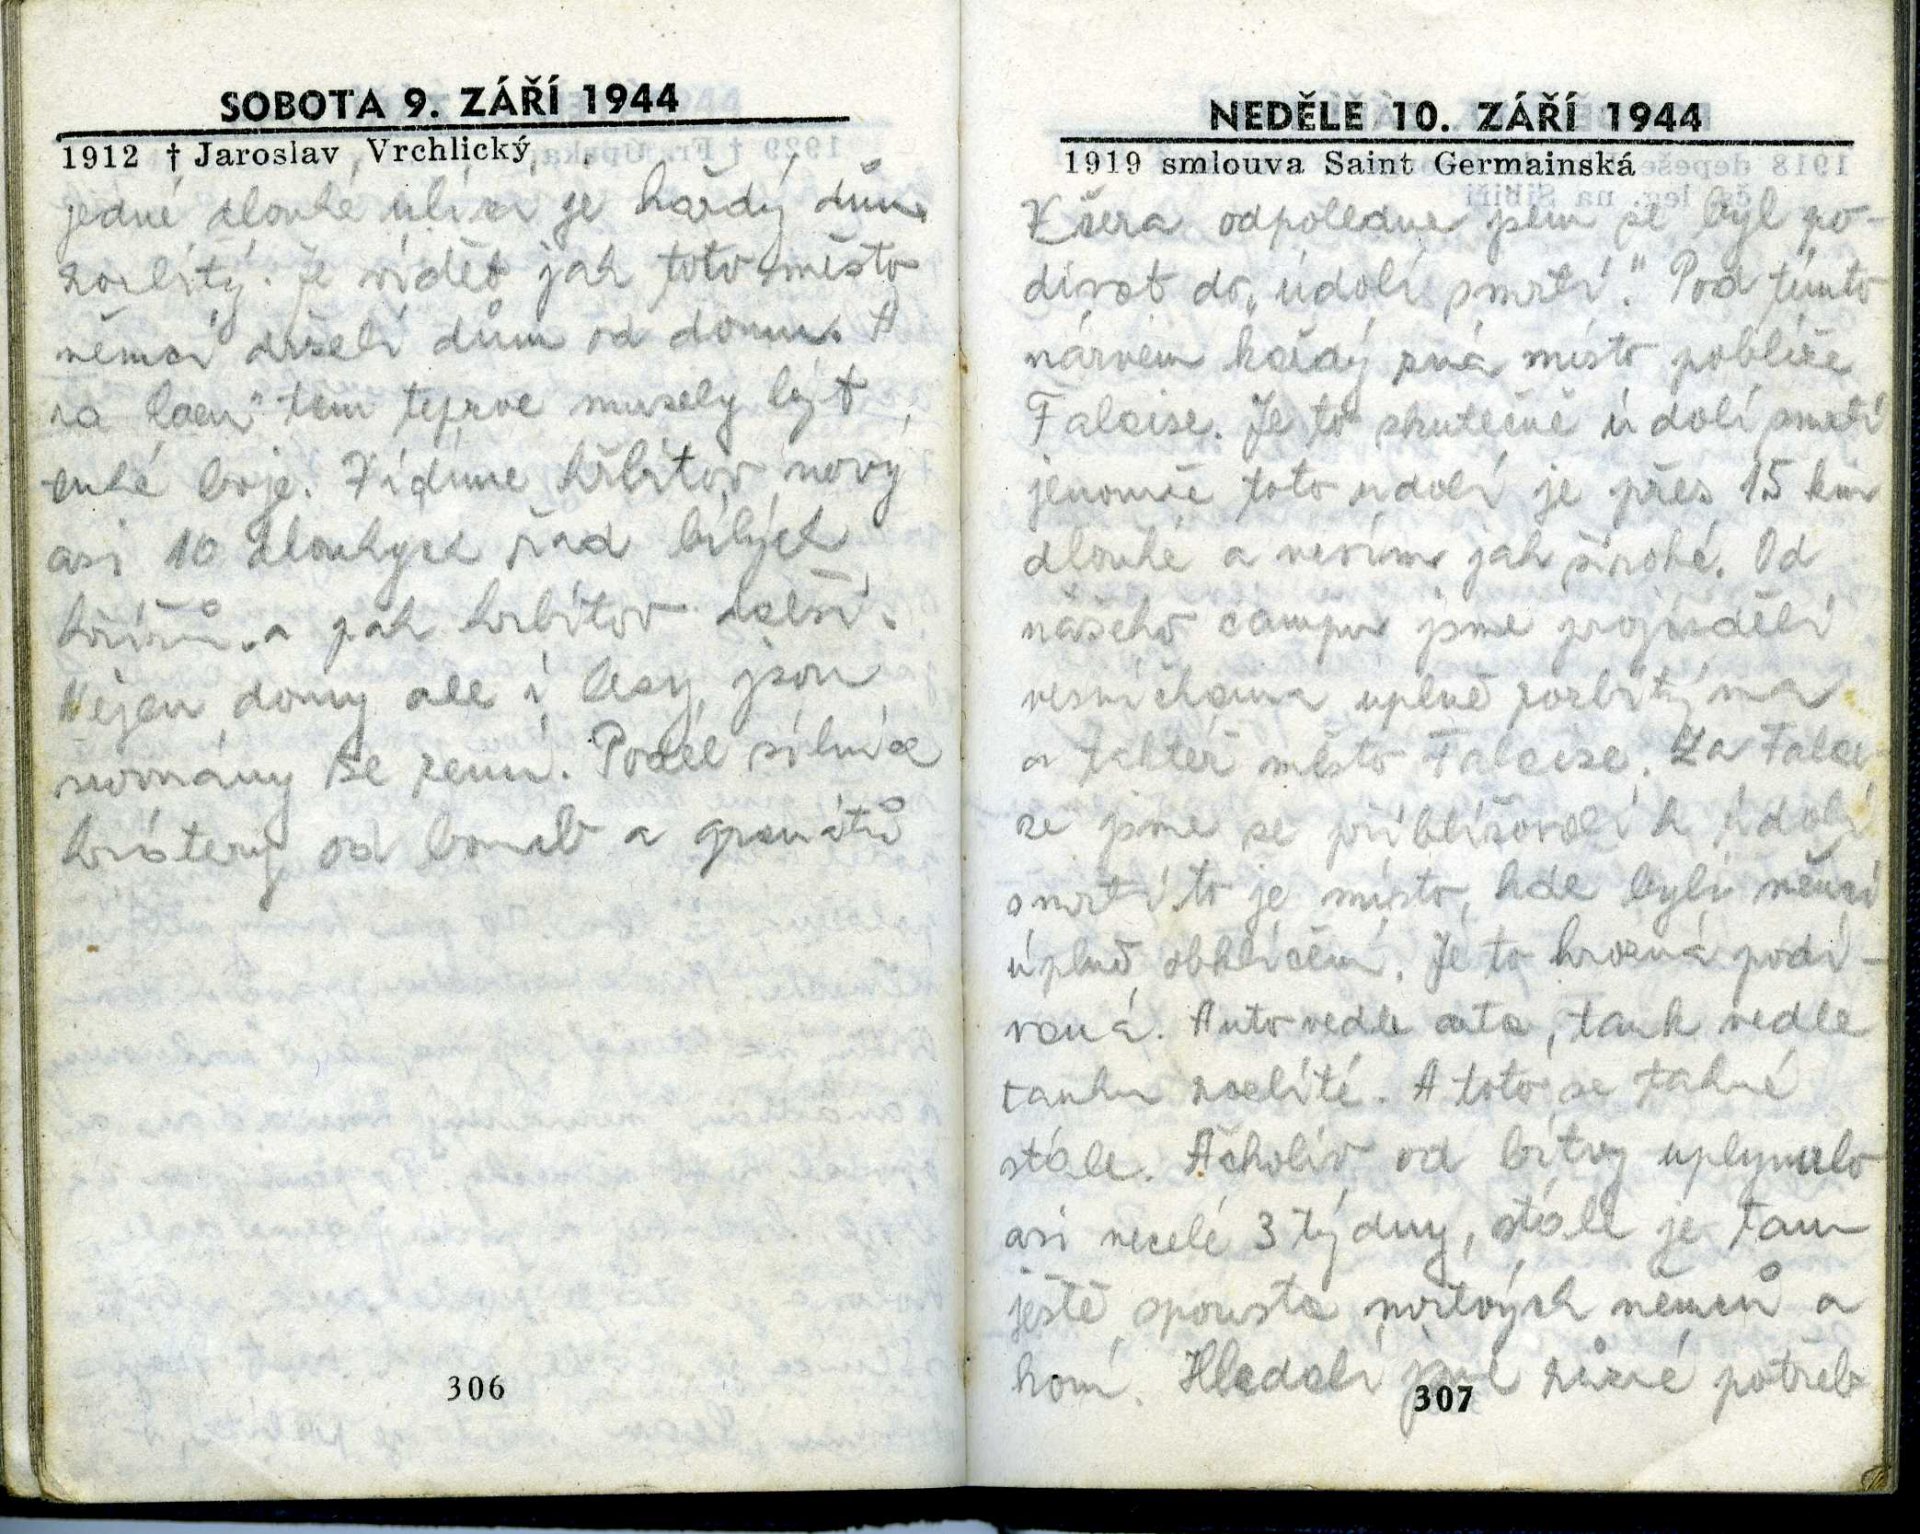 SOBOTA 9. ZÁŘÍ 1944
1912 † Jaroslav Vrchlický
jedné dlouhé ulici je každý dům
rozbitý. Je vidět jak toto město
němci drželi dům od domu. A
za Caen" tam teprve musely být
tuhé boje. Vidíme hřbitov nový
asi 10 dlouhych řad bílých
křížů a pak hrbitov další.
Nejen domy ale i lesy jsou
srovnány se zemí. Podél silnice
krátery od bomb a granátů
306
NEDĚLE 10. ZÁŘÍ 1944
1919 smlouva Saint Germainská
Včera odpoledne jsem se byl po-
dívat do „údolí smrti." Pod tímto
názvem každý zná místo poblíže
Falaise. Je to skutečně údolí smrti
jenomže toto údolí je přes 15 km
dlouhé a nevím jak široké. Od
našeho campu jsme projížděli
vesničkama uplně rozbitýma
a taktéž město Falaise. Za Falai-
se jsme se přibližovali k údolí
smrti to je místo, kde byli němci
úplně obklíčení. Je to hrozná podí-
vaná. Auto vedle auta, tank vedle
tanku rozbité. A toto se táhne
stále. Ačkoliv od bitvy uplynulo
asi necelé 3 týdny, stále je tam
ještě spousta mrtvých němců a
koní. Hledali jsme různé potřeb
307